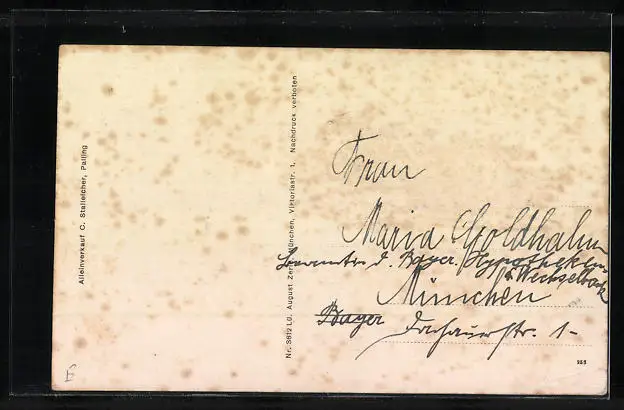 Alleinverkauf C. Stalleicher, Palling
Nr. 3612 LÜ. August Zerle, München, Viktoriastr. 1. Nachdruck verboten
Frau
Maria Goldhahn
d. Bayer. Hypotheken-
& Wechselbank
München
Bayer
str. 1-